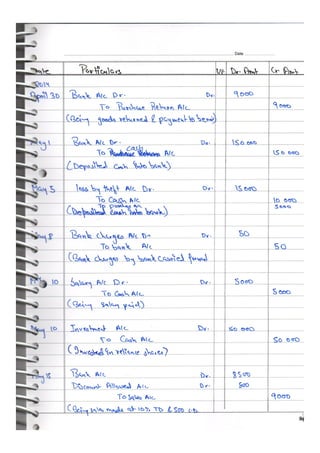 Date
Date Particulars L/F Dr. Amt Cr Amt
2014
April 30 Bank A/c Dr. Dr. 9000
To Purchase Return A/c 9000
(Being goods returned & payment to bank)
May 1 Bank A/c Dr. Dr. 150 000
To cash A/c 150 000
(Deposited Cash into bank)
May 5 loss by theft A/c Dr. Dr. 15000
To Cash A/c 10 000
To A/c 5000
(Deposited Cash into bank.)
May 8 Bank charges A/c Dr Dr. 50
To bank A/c 50
(Bank charges by bank carried forward
10 Salary A/c Dr. Dr. 5000
To Cash A/c 5000
(Being Salary paid)
May 10 Investment A/c Dr. 50 000
To Cash A/c 50 000
(Invested in reliance shares)
May 18 Bank A/c Dr. 8500
Discount Allowed A/c Dr. 500
To Sales A/c 9000
(Being sales made at 10% TD & 500 C.D.